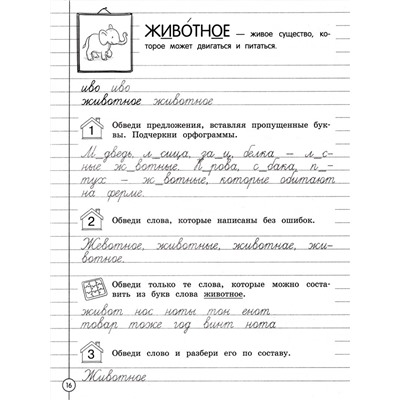 ЖИВО́ТНОЕ — живое существо, ко-
торое может двигаться и питаться.
иво иво
животное животное
1 Обведи предложения, вставляя пропущенные бук-
вы. Подчеркни орфограммы.
М_дведь, л_сица, за_ц, белка – л_с-
ные ж_вотные. К_рова, с_бака, п_-
тух – ж_вотные, которые обитают
на ферме.
2 Обведи слова, которые написаны без ошибок.
Жевотное, животные, животнае, жи-
вотное.
Обведи только те слова, которые можно соста-
вить из букв слова животное.
живот нос ноты тон енот
товар тоже год винт нота
3 Обведи слово и разбери его по составу.
Животное
16